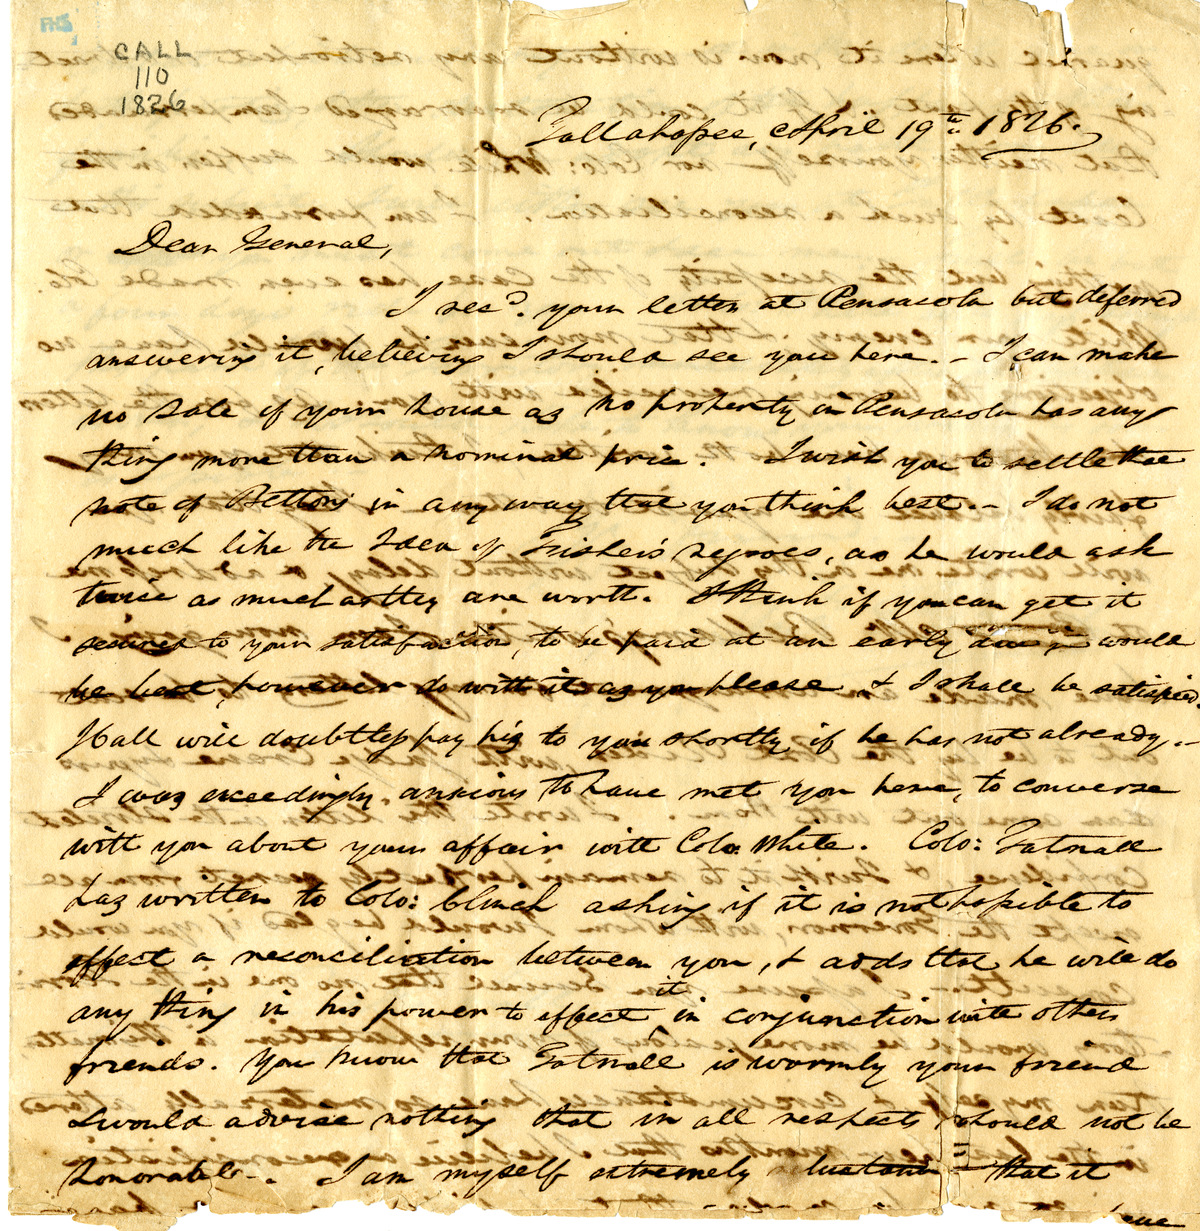 FHS
CALL
110
1826
Tallahassee, April 19th 1826.
Dear General,
I recd. your letter at Pensacola but deferred
answering it, believing I should see you here. - I can make
no Sale of your house as no property in Pensacola has any
thing more than a nominal price. I wish you to settle the
note of Bettons in any way that you think best. - I do not
much like the Idea of Fisher's negroes, as he would ask
twice as much as they are worth. I think if you can get it
secured to your satisfaction, to be paid at an early day would
be best, however do with it as you please & I shall be satisfied.
Hall will doubtless pay his to you shortly if he has not already. -
I was exceedingly anxious to have met you here, to converse
with you about your affair with Colo. White. Colo: Fatnall
has written to Colo: Clinch asking if it is not possible to
effect a reconciliation between you, & adds that he will do
any thing in his power to effect it in conjunction with other
friends. You know that Fatnall is warmly your friend
& would advise nothing that in all respects should not be
honorable -. I am myself extremely that it